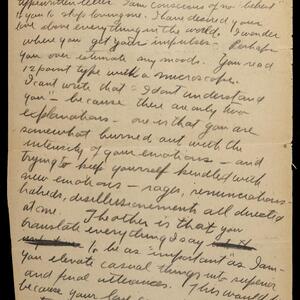 typewritten letter. I am conscious of no "behest"
to you to stop loving me. I have desired your
love above everything in the world. I wonder
where you get your impulses. Perhaps
you over estimate my moods. You read
12 point type with a microscope.
I cant write that "I dont understand
you" — because there are only two
explanations — one is that you are
somewhat burned out with the
intensity of your emotions — and
trying to keep yourself kindled with
new emotions — rages, renunciations —
hatreds, desillusionments all directed
at me. The other is that you
translate everything I say
to be as "important" as I am —
you elevate casual things into superior
and final utterances. This would be
because your